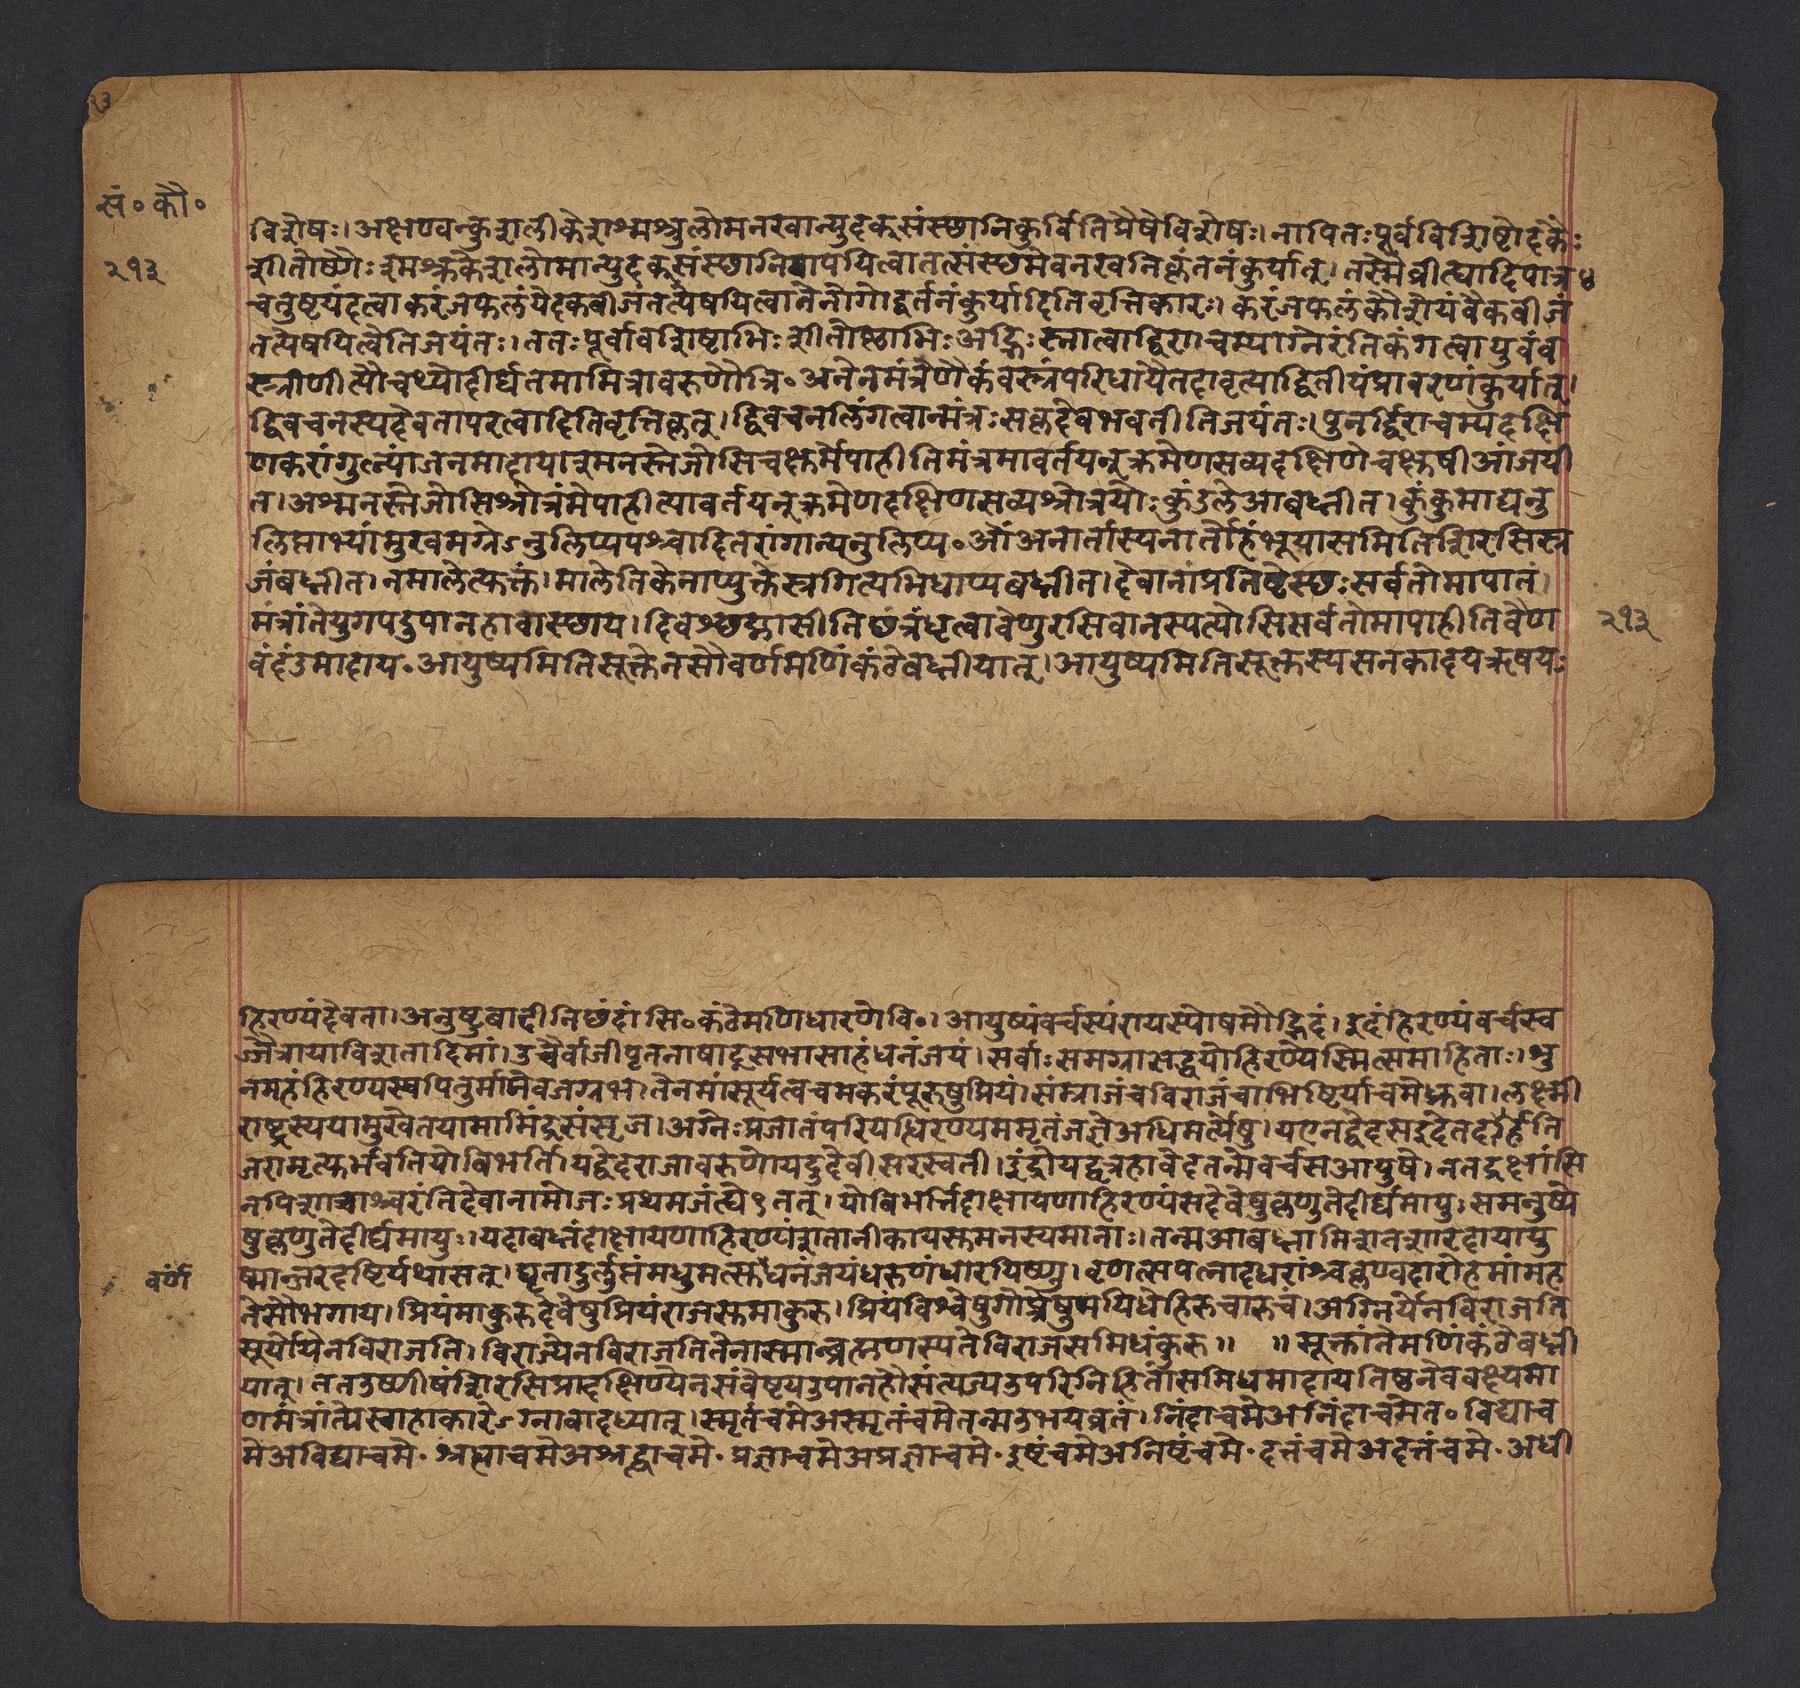 १३
सं॰ कौ॰
२१३
विशेषः। अक्षण्वन्कुशलीकेशश्मश्रुलोमनखान्युदक्संस्छानिकुर्वितिप्रैषेविशेषः। नापितःपूर्वविशिष्टोदकैः
शीतोष्णैःश्मश्रुकेशलोमान्युदक्संस्छानिवापयित्वातत्संस्छमेवनखनिकृंतनंकुर्यात्। तस्मैव्रीह्यादिपात्र४
चतुष्टयंदत्वाकरंजफलंयदेकबीजंतत्पेषयित्वातेनांगोद्वर्तनंकुर्यादितिवृत्तिकारः। करंजफलंकौशेयंचैकबीजं
तत्पेषयित्वेतिजयंतः। ततःपूर्वावशिष्टाभिःशीतोष्णाभिःअद्भिःस्नात्वाद्विराचम्याग्नेरंतिकंगत्वायुवंव
स्त्रीणीत्यौचथ्योदीर्घतमामित्रावरुणौत्रि॰ अनेनमंत्रेणैकंवस्त्रंपरिधायैतदावृत्याद्वितीयंप्रावरणंकुर्यात्।
द्विवचनस्यदेवतापरत्वादितिवृत्तिकृत्। द्विवचनलिंगत्वान्मंत्रःसकृदेवभवतीतिजयंतः। पुनर्द्विराचम्यदक्षि
णकरांगुल्यांजनमादायाश्मनस्तेजोसिचक्षुर्मेपाहीतिमंत्रमावर्तयन्क्रमेणसव्यदक्षिणेचक्षुषीआंजयी
त। अश्मनस्तेजोसिश्रोत्रंमेपाहीत्यावर्तयन्क्रमेणदक्षिणसव्यश्रोत्रयोःकुंडलेआबध्नीत। कुंकुमाद्यनु
लिप्ताभ्यांमुखमग्रेऽनुलिप्यपश्चादितरांगान्यनुलिप्य॰ ओंअनार्तास्यनार्तोहंभूयासमितिशिरसिस्र
जंबध्नीत। नमालेत्युक्तां। मालेतिकेनाप्युक्तेस्रगित्यभिधाप्यबध्नीत। देवानांप्रतिष्ठेस्छःसर्वतोमापातं।
मंत्रांतेयुगपदुपानहावास्छाय। दिवश्छद्मासीतिछत्रंधृत्वावेणुरसिवानस्पत्योसिसर्वतोमापाहीतिवैण
वंदंडमादाय॰ आयुष्यमितिसूक्तेनसौवर्णमणिंकंठेबध्नीयात्। आयुष्यमितिसूक्तस्यसनकादयऋषयः
२१३
हिरण्यंदेवता। अनुष्टुबादीनिछंदांसि॰ कंठेमणिधारणेवि॰। आयुष्यंवर्चस्यंरायस्पोषमौद्भिदं। इदंहिरण्यंवर्चस्व
ज्जैत्रायाविशतादिमां। उच्चैर्वाजीपृतनाषाट्सभासाहंधनंजयं। सर्वाःसमग्रासृद्धयोहिरण्येस्मित्समाहिताः। शु
नमहंहिरण्यस्यपितुर्मामेवजग्रभ। तेनमांसूर्यत्वचमकरंपूरुषुप्रियं। संम्राजंचविराजंचाभिष्टिर्याचमेध्रुवा। लक्ष्मी
राष्ट्रस्ययामुखेतयामामिंद्रसंसृज। अग्नेःप्रजातंपरियद्धिरण्यममृतंजज्ञेअधिमर्त्येषु। यएनद्वेदसइदेतदर्हति
जरामृत्युर्भवतियोबिभर्ति। यद्वेदराजावरुणोयदुदेवीसरस्वती। इंद्रोयद्वृत्रहावेदतन्मेवर्चसआयुषे। नतद्रक्षांसि
नपिशाचाश्चरंतिदेवानामोजःप्रथमजंत्ये९तत्। योबिभर्त्तिदाक्षायणाहिरण्यंसदेवेषुकृणुतेदीर्घमायुःसमनुष्ये
षुकृणुतेदीर्घमायुः। यदाबध्नंदाक्षायणाहिरण्यंशतानीकायसुमनस्यमानाः। तन्मआबध्नामिशतशारदायायु
वर्ण
ष्मान्जरदष्टिर्यथासत्। घृतादुर्लुप्तंमधुमत्सुधनंजयंधरुणंधारयिष्णु। ऋणत्सपत्नादधरांश्चकृण्वदारोहमांमह
तेसौभगाय। प्रियंमाकुरुदेवेषुप्रियंराजसुमाकुरु। प्रियंविश्वेषुगोप्त्रेषुमयिधेहिरुचारुचं। अग्निर्येनविराजति
सूर्योयेनविराजति। विराज्येनविराजतितेनास्मान्ब्रह्मणस्पतेविराजसमिधंकुरु॥ ॥ सूक्तांतेमणिंकंठेबध्नी
यात्। ततउष्णीषंशिरसिप्रादक्षिण्येनसंवेष्ट्यउपानहौसंत्यज्यउपरिनिहितांसमिधमादायतिष्ठन्नेववक्ष्यमा
णमंत्रांत्येस्वाहाकारेऽग्नावादध्यात्। स्मृतंचमेअस्मृतंचमेतन्मउभयव्रतं। निंदाचमेअनिंदाचमेत॰ विद्याच
मेअविद्याचमे॰ श्रद्धाचमेअश्रद्धाचमे॰ प्रज्ञाचमेअप्रज्ञाचमे॰ इष्टंचमेअनिष्टंचमे॰ दत्तंचमेअदत्तंचमे॰ अधी